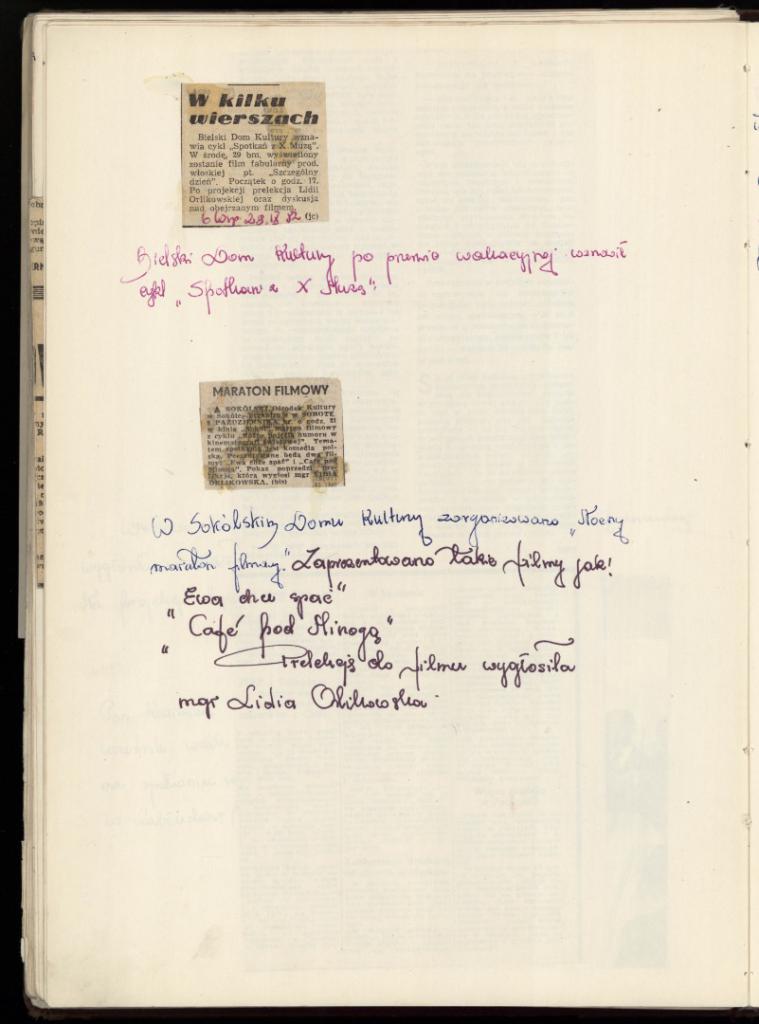 W kilku
wierszach
Bielski Dom Kultury wzna-
wia cykl „Spotkań z X Muzą".
W środę, 29 bm. wyświetlony
zostanie film fabularny prod.
włoskiej pt. „Szczególny
dzień". Początek o godz. 17.
Po projekcji prelekcja Lidii
Orlikowskiej oraz dyskusja
nad obejrzanym filmem.
(jc)
Bielski Dom Kultury po przerwie wakacyjnej wznowił
cykl „Spotkań z X Muzą".
MARATON FILMOWY
▲ SOKÓLSKI Ośrodek Kultury
w SOBOTĘ
PAŹDZIERNIKA br. o godz. 21
filmowy
z cyklu humoru w
kinematografii
jest komedia pol-
ska. będą dwa fil-
my: „Ewa chce spać" i „Café pod
Minogą". Pokaz poprzedzi pre-
lekcja, którą wygłosi mgr LIDIA
ORLIKOWSKA. (bis)
W Sokólskim Domu Kultury zorganizowano „Nocny
maraton filmowy". Zaprezentowano takie filmy jak!
„Ewa chce spać"
„Café pod Minogą"
Prelekcję do filmu wygłosiła
mgr Lidia Orlikowska.